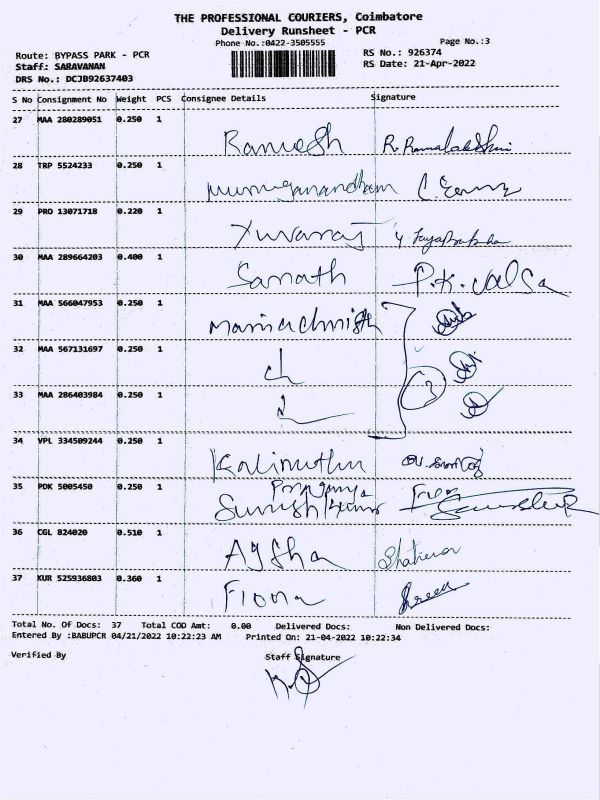 THE PROFESSIONAL COURIERS, Coimbatore
Delivery Runsheet - PCR
Phone No.:0422-3505555
Page No.:3
Route: BYPASS PARK - PCR
RS No.: 926374
Staff: SARAVANAN
RS Date: 21-Apr-2022
DRS No.: DCJB92637403
S No Consignment No Weight PCS Consignee Details Signature
27 MAA 280289051 0.250 1
Ramesh R. Ramalakshmi
28 TRP 5524233 0.250 1
Muruganandham
29 PRO 13071718 0.220 1
Yuvaraj
30 MAA 289664203 0.400 1
Sanath P.K. Valsa
31 MAA 566047953 0.250 1
32 MAA 567131697 0.250 1
33 MAA 286403984 0.250 1
3
34 VPL 334509244 0.250 1
Kalimuthu
35 PDK 5005450 0.250 1
36 CGL 824020 0.510 1
Aysha
37 KUR 525936803 0.360 1
Fiona
Total No. Of Docs: 37 Total COD Amt: 0.00 Delivered Docs: Non Delivered Docs:
Entered By :BABUPCR 04/21/2022 10:22:23 AM Printed On: 21-04-2022 10:22:34
Verified By Staff Signature